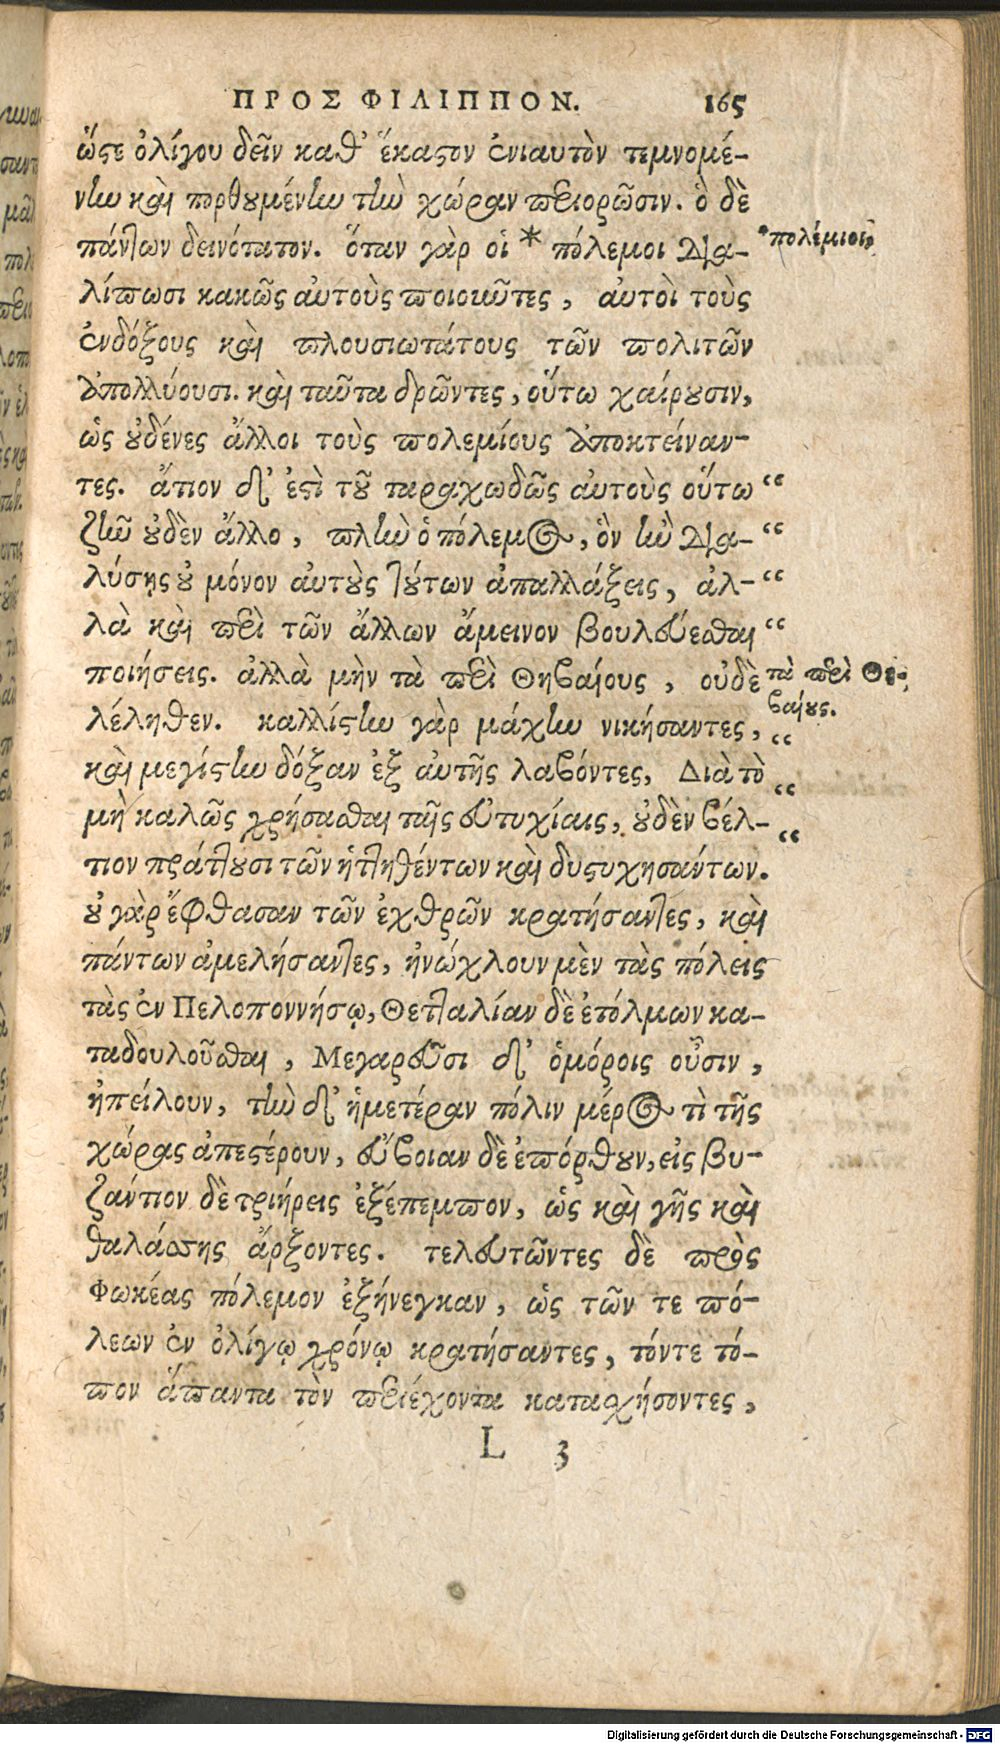 ΠΡΟΣ ΦΙΛΙΠΠΟΝ. 165
ὥστε ὀλίγου δεῖν καθ’ ἕκαστον ἐνιαυτὸν τεμνομέ-
νην καὶ πορθουμένην τὴν χώραν περιορῶσιν. ὃ δὲ
πάντων δεινότατον. ὅταν γὰρ οἱ * πόλεμοι δια-
*πολέμιοι
λίπωσι κακῶς αὐτοὺς ποιοῦντες, αὐτοὶ τοὺς
ἐνδόξους καὶ πλουσιωτάτους τῶν πολιτῶν
ἀπολλύουσι. καὶ ταῦτα δρῶντες, οὕτω χαίρουσιν,
ὡς οὐδένες ἄλλοι τοὺς πολεμίους ἀποκτείναν-
τες. αἴτιον δ’ ἐστὶ τοῦ ταραχωδῶς αὐτοὺς οὕτω “
ζῆν οὐδὲν ἄλλο, πλὴν ὁ πόλεμος, ὃν ἢν δια- “
λύσῃς οὐ μόνον αὐτοὺς τούτων ἀπαλλάξεις, ἀλ- “
λὰ καὶ περὶ τῶν ἄλλων ἄμεινον βουλεύεσθαι “
ποιήσεις. ἀλλὰ μὴν τὰ περὶ Θηβαίους, οὐδὲ
τὰ περὶ Θη-
βαίους.
λέληθεν. καλλίστην γὰρ μάχην νικήσαντες, “
καὶ μεγίστην δόξαν ἐξ αὐτῆς λαβόντες, Διὰ τὸ “
μὴ καλῶς χρήσασθαι ταῖς εὐτυχίαις, οὐδὲν βέλ- “
τιον πράττουσι τῶν ἡττηθέντων καὶ δυστυχησάντων.
οὐ γὰρ ἔφθασαν τῶν ἐχθρῶν κρατήσαντες, καὶ
πάντων ἀμελήσαντες, ἠνώχλουν μὲν τὰς πόλεις
τὰς ἐν Πελοποννήσῳ, Θετταλίαν δὲ ἐτόλμων κα-
ταδουλοῦσθαι, Μεγαρεῦσι δ’ ὁμόροις οὖσιν,
ἠπείλουν, τὴν δ’ ἡμετέραν πόλιν μέρος τὶ τῆς
χώρας ἀπεστέρουν, εὔβοιαν δὲ ἐπόρθουν, εἰς βυ-
ζάντιον δὲ τριήρεις ἐξέπεμπον, ὡς καὶ γῆς καὶ
θαλάσσης ἄρξοντες. τελευτῶντες δὲ πρὸς
Φωκέας πόλεμον ἐξήνεγκαν, ὡς τῶν τε πό-
λεων ἐν ὀλίγῳ χρόνῳ κρατήσαντες, τόντε τό-
πον ἅπαντα τὸν περιέχοντα κατασχήσοντες,
L 3
Digitalisierung gefördert durch die Deutsche Forschungsgemeinschaft - DFG